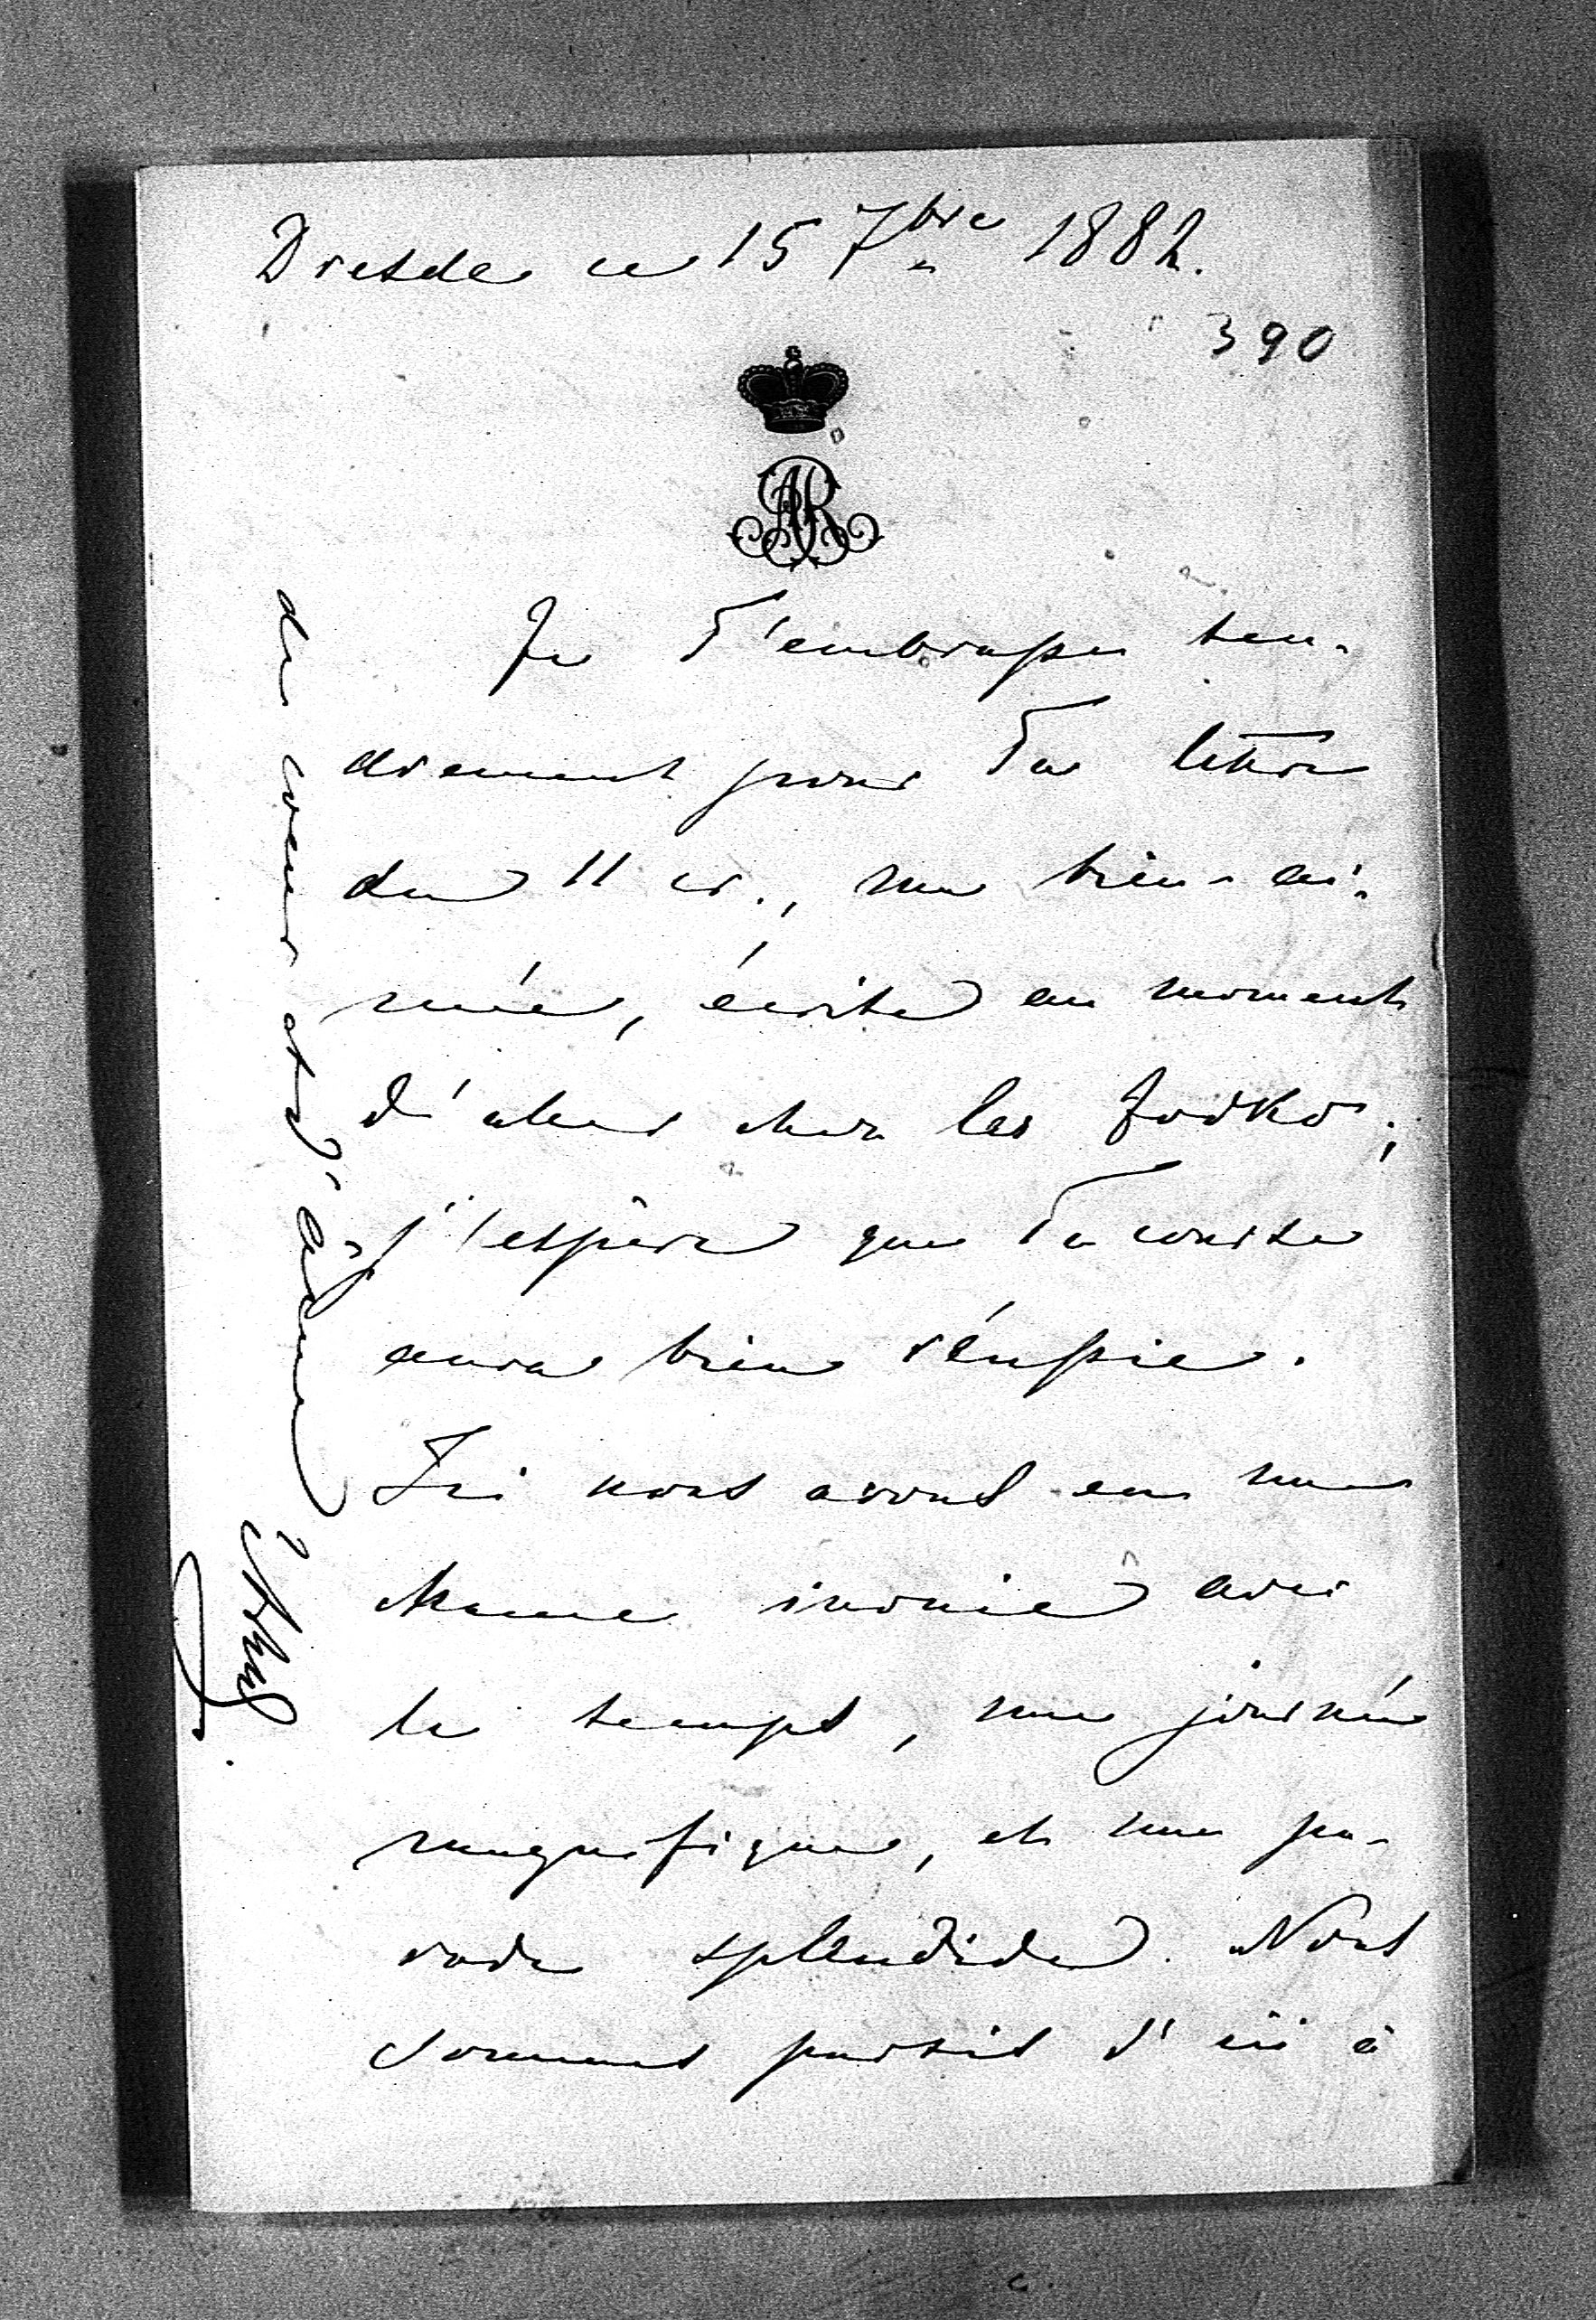 Dresde ce 15 7bre 1882.
390
AR
Je T'embrasse ten-
drement pour Ta lettre
du 11 cr., ma bien-ai-
mée, écrite au moment
d'aller chez les Jodko;
j'espère que Ta course
aura bien réussie.
Ici nous avons eu une
chance inouie avec
le temps, une journée
magnifique, et une pa-
rade splendide. Nous
sommes partis d'ici à
de coeur et d'âme